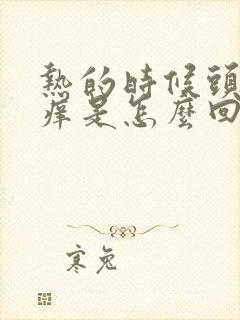 熱的時候頭
癢是怎麼回
寒兔